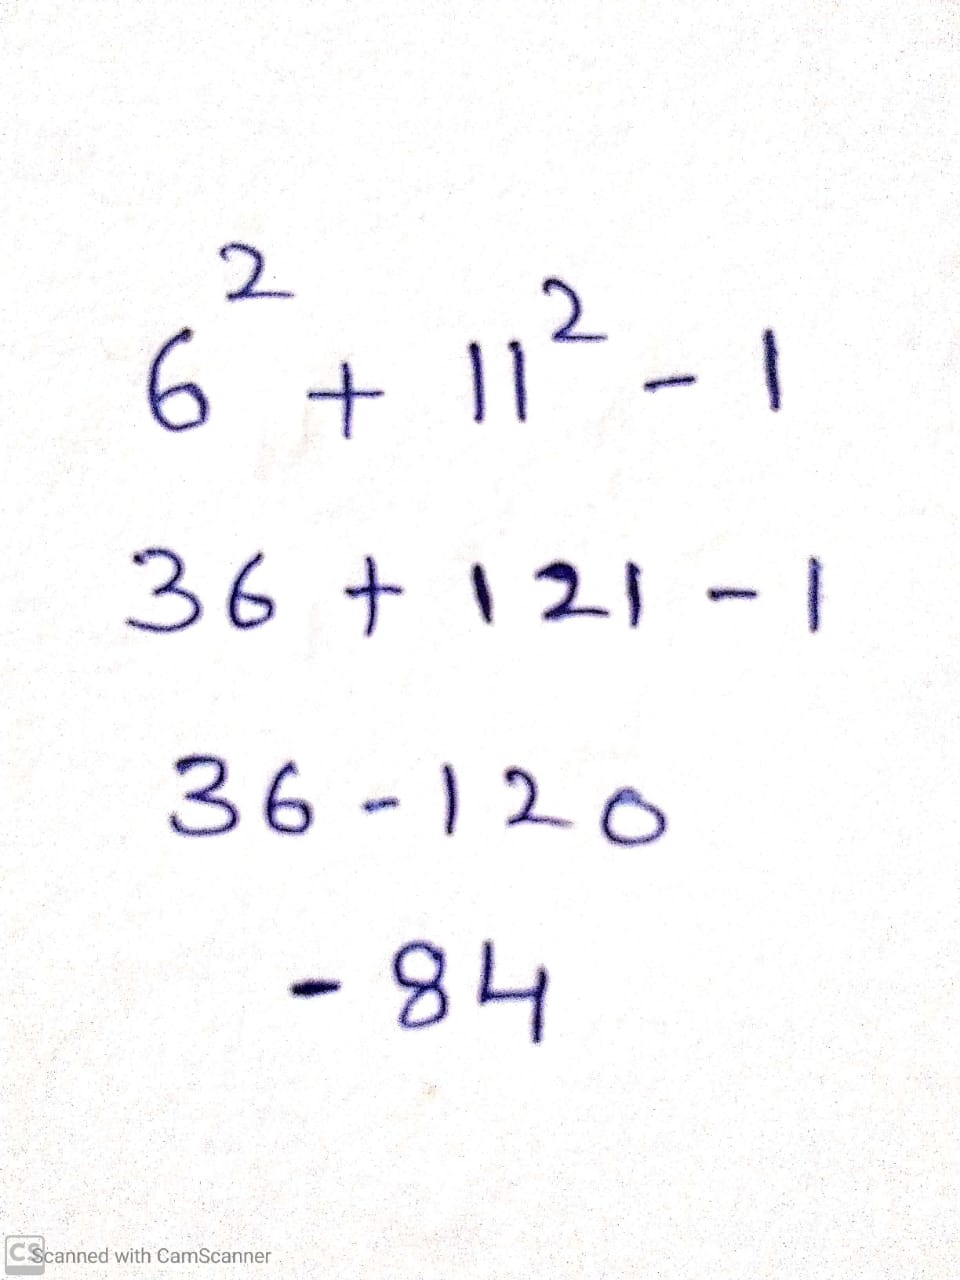 6² + 11² - 1
36 + 121 - 1
36 - 120
- 84
CS Scanned with CamScanner